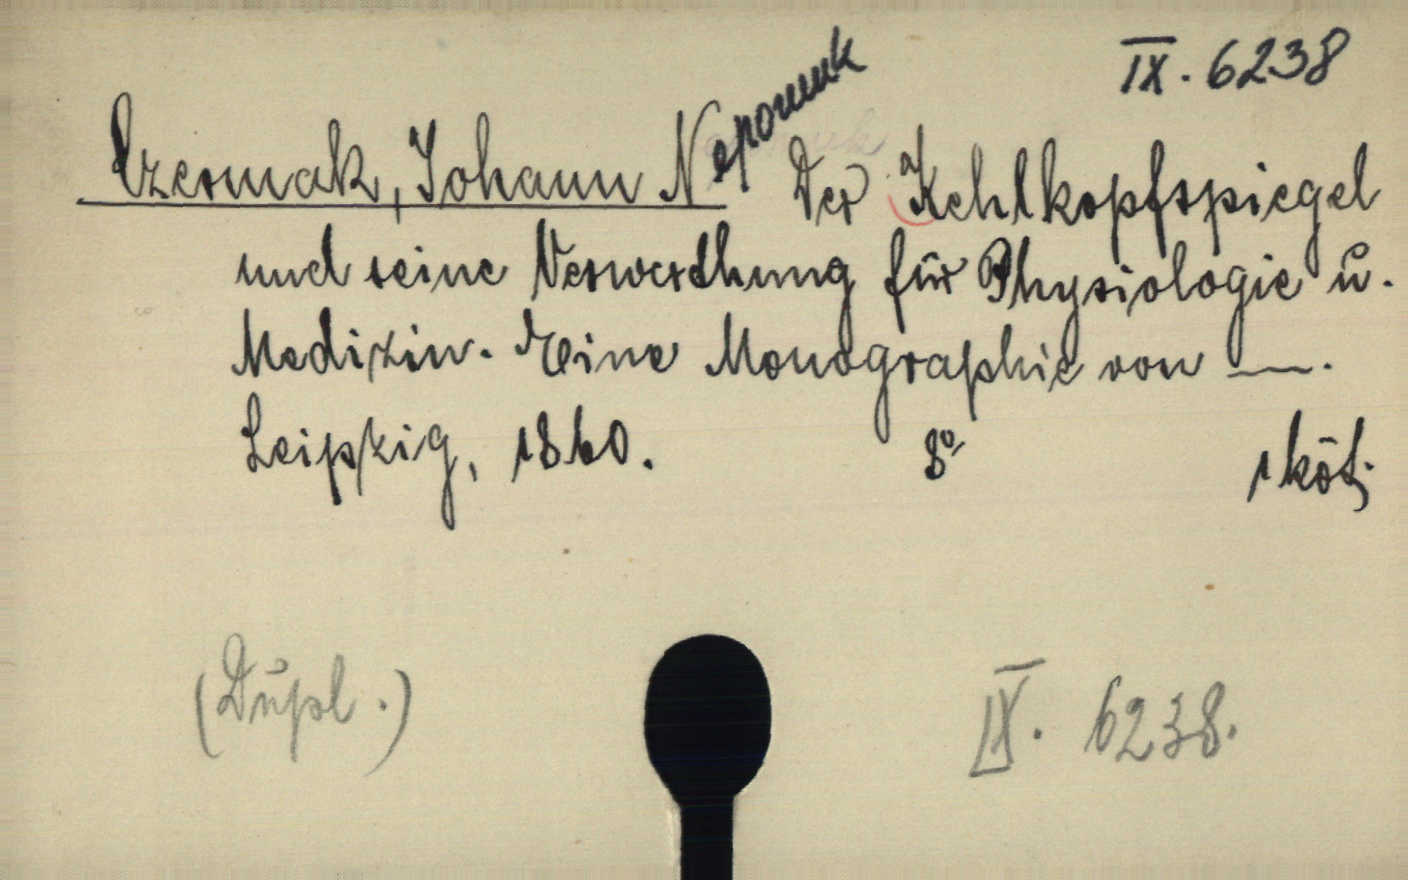 IX. 6238
Czermak, Johann Nepomuk Der Kehlkopfspiegel
und seine Verwerthung für Physiologie u.
Medizin. Eine Monographie von —.
Leipzig, 1860. 8° 1 köt.
(Dupl.) IX. 6238.